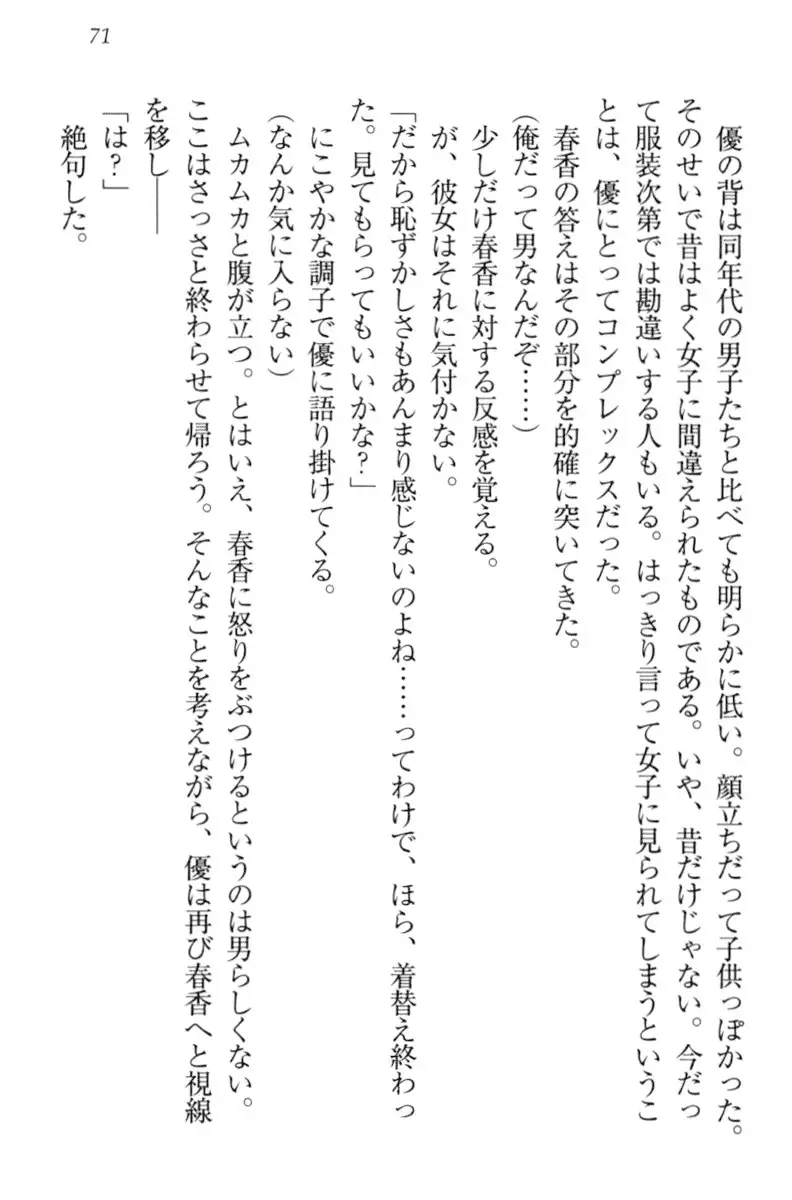 71
優の背は同年代の男子たちと比べても明らかに低い。顔立ちだって子供っぽかった。
そのせいで昔はよく女子に間違えられたものである。いや、昔だけじゃない。今だっ
て服装次第では勘違いする人もいる。はっきり言って女子に見られてしまうというこ
とは、優にとってコンプレックスだった。
春香の答えはその部分を的確に突いてきた。
(俺だって男なんだぞ……)
少しだけ春香に対する反感を覚える。
が、彼女はそれに気付かない。
「だから恥ずかしさもあんまり感じないのよね……ってわけで、ほら、着替え終わっ
た。見てもらってもいいかな?」
にこやかな調子で優に語り掛けてくる。
(なんか気に入らない)
ムカムカと腹が立つ。とはいえ、春香に怒りをぶつけるというのは男らしくない。
ここはさっさと終わらせて帰ろう。そんなことを考えながら、優は再び春香へと視線
を移し――
「は?」
絶句した。